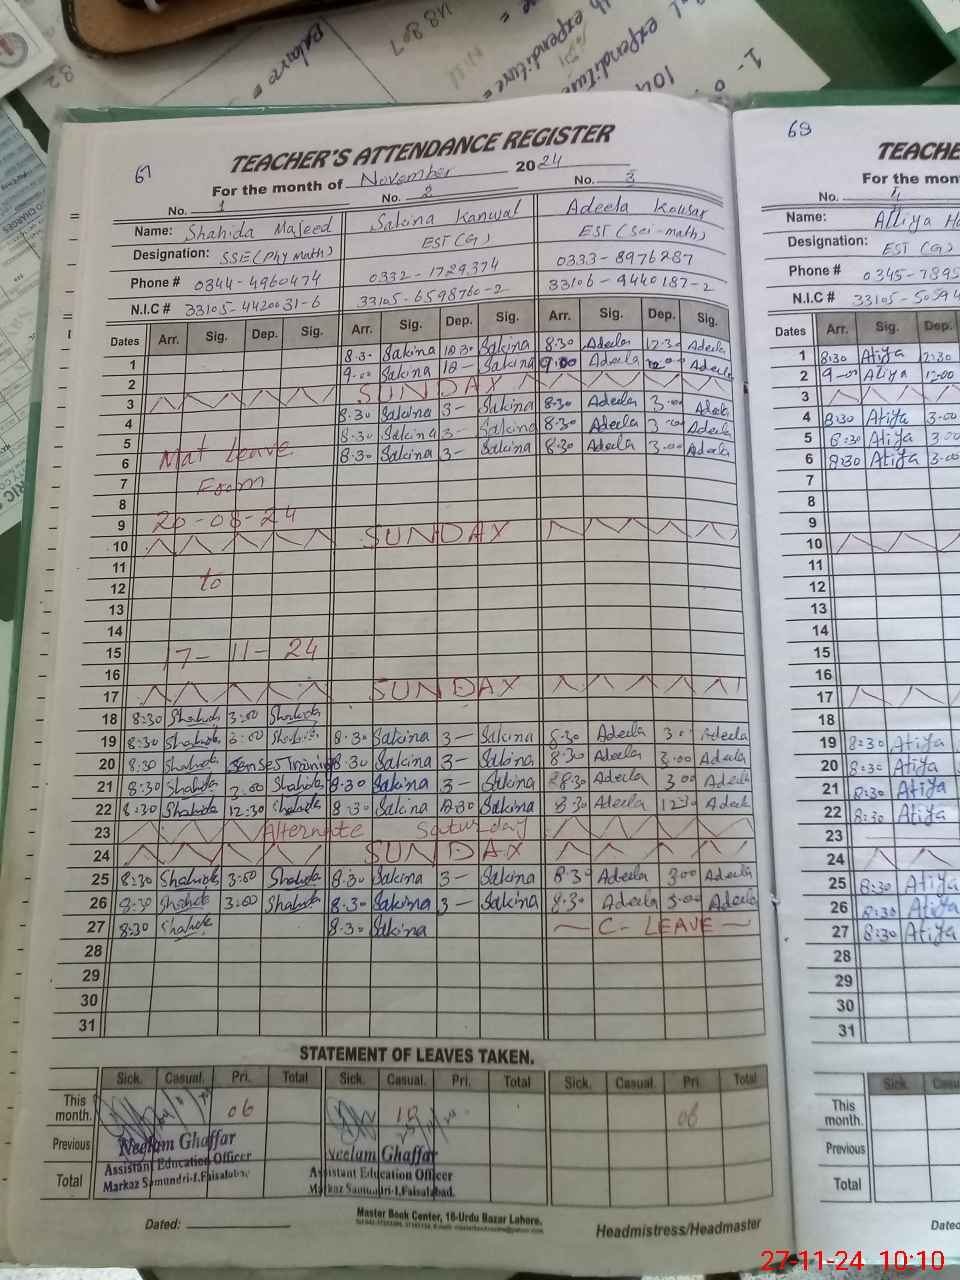 expenditure =
48807
Balance =
32
1-
104
67
TEACHER'S ATTENDANCE REGISTER
For the month of November 2024
No. 1 No. 2 No. 3
Name: Shahida Majeed Sakina Kanwal Adeela Kousar
Designation: SSE(Phy Math) EST(G) EST(Sci-math)
Phone # 0344-4960474 0332-1729374 0333-8976287
N.I.C # 33105-4420031-6 33105-6598760-2 33106-9440187-2
Dates Arr. Sig. Dep. Sig. Arr. Sig. Dep. Sig. Arr. Sig. Dep. Sig.
1 8.30 Sakina 12.30 Sakina 8:30 Adeela 12:30 Adeela
2 9.00 Sakina 12- Sakina 9:00 Adeela 12:00 Adeela
3 SUNDAY
4 8.30 Sakina 3- Sakina 8:30 Adeela 3.00 Adeela
5 8.30 Sakina 3- Sakina 8:30 Adeela 3.00 Adeela
6 Mat Leave 8.30 Sakina 3- Sakina 8:30 Adeela 3.00 Adeela
7 From
8
9 20-08-24
10 SUNDAY
11
12 to
13
14
15 17-11-24
16
17 SUNDAY
18 8:30 Shahida 3:00 Shahida
19 8:30 Shahida 3:00 Shahida 8.30 Sakina 3- Sakina 8:30 Adeela 3.00 Adeela
20 8:30 Shahida 8.30 Sakina 3- Sakina 8:30 Adeela 3.00 Adeela
21 8:30 Shahida 3.00 Shahida 8.30 Sakina 3- Sakina 8:30 Adeela 3.00 Adeela
22 8:30 Shahida 12:30 Shahida 8.30 Sakina 12.30 Sakina 8:30 Adeela 12:30 Adeela
23 Alternate Saturday
24 SUNDAY
25 8:30 Shahida 3:00 Shahida 8.30 Sakina 3- Sakina 8:30 Adeela 3.00 Adeela
26 8:30 Shahida 3:00 Shahida 8.30 Sakina 3- Sakina 8:30 Adeela 3.00 Adeela
27 8:30 Shahida 8.30 Sakina C- LEAVE
28
29
30
31
STATEMENT OF LEAVES TAKEN.
Sick. Casual. Pri. Total Sick. Casual. Pri. Total Sick. Casual. Pri. Total
This month. 06 10 08
Previous
Total
Neelam Ghaffar
Assistant Education Officer
Markaz Samundri-I,Faisalabad
Neelam Ghaffar
Assistant Education Officer
Markaz Samundri-I,Faisalabad.
Dated:
Master Book Center, 16-Urdu Bazar Lahore.
Headmistress/Headmaster
69
TEACHE
For the mon
No. 4
Name: Atiya
Designation: EST(G)
Phone # 0345-7895
N.I.C # 33105-50594
Dates Arr. Sig. Dep.
1 8:30 Atiya 12:30
2 9-00 Atiya 12:00
3
4 8:30 Atiya 3.00
5 8:30 Atiya 3:00
6 8:30 Atiya 3-00
7
8
9
10
11
12
13
14
15
16
17
18
19 8:30 Atiya
20 8:30 Atiya
21 8:30 Atiya
22 8:30 Atiya
23
24
25 8:30 Atiya
26 8:30 Atiya
27 8:30 Atiya
28
29
30
31
Sick. Casu
This month.
Previous
Total
Dated
27-11-24 10:10